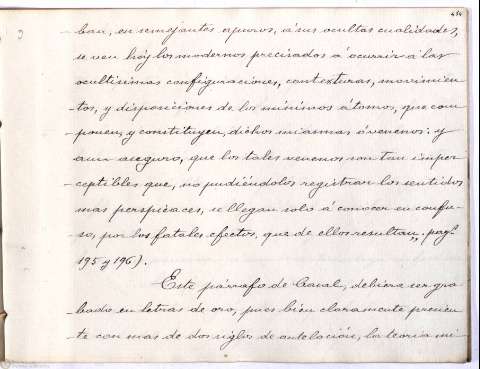 414
ban, en semejantes apuros, á sus ocultas cualidades,
se ven hoy los modernos precisados á ocurrir á las
ocultisimas configuraciones, contexturas, movimien-
-tos, y disposiciones de los mínimos átomos, que com-
-ponen, y constituyen, dichos miasmas ó venenos: y
aun aseguro, que los tales venenos son tan imper-
-ceptibles que, no pudiéndolos registrar los sentidos
mas perspicaces, se llegan solo á conocer en confu-
-so, por los fatales efectos, que de ellos resultan", pag.s
195 y 196).
Este párrafo de Casal, debiera ser gra-
bado en letras de oro, pues bien claramente presien-
te con mas de dos siglos de antelación, la teoría mi-